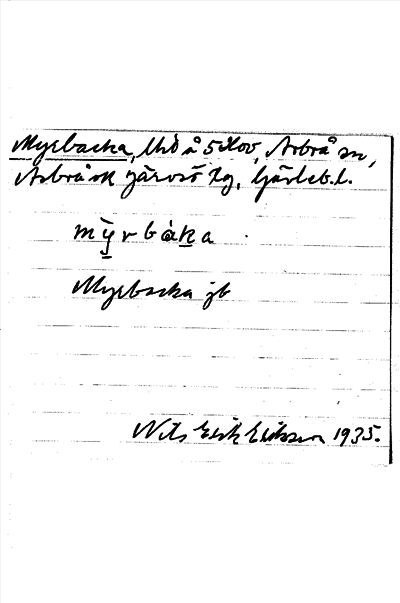 Myrbacka, lhd å 5 Hov, Arbrå sn,
Arbrå ok Järvsö tg, Gävleb. l.
mỳrbàka
Myrbacka jb
Nils Erik Eriksson 1935.